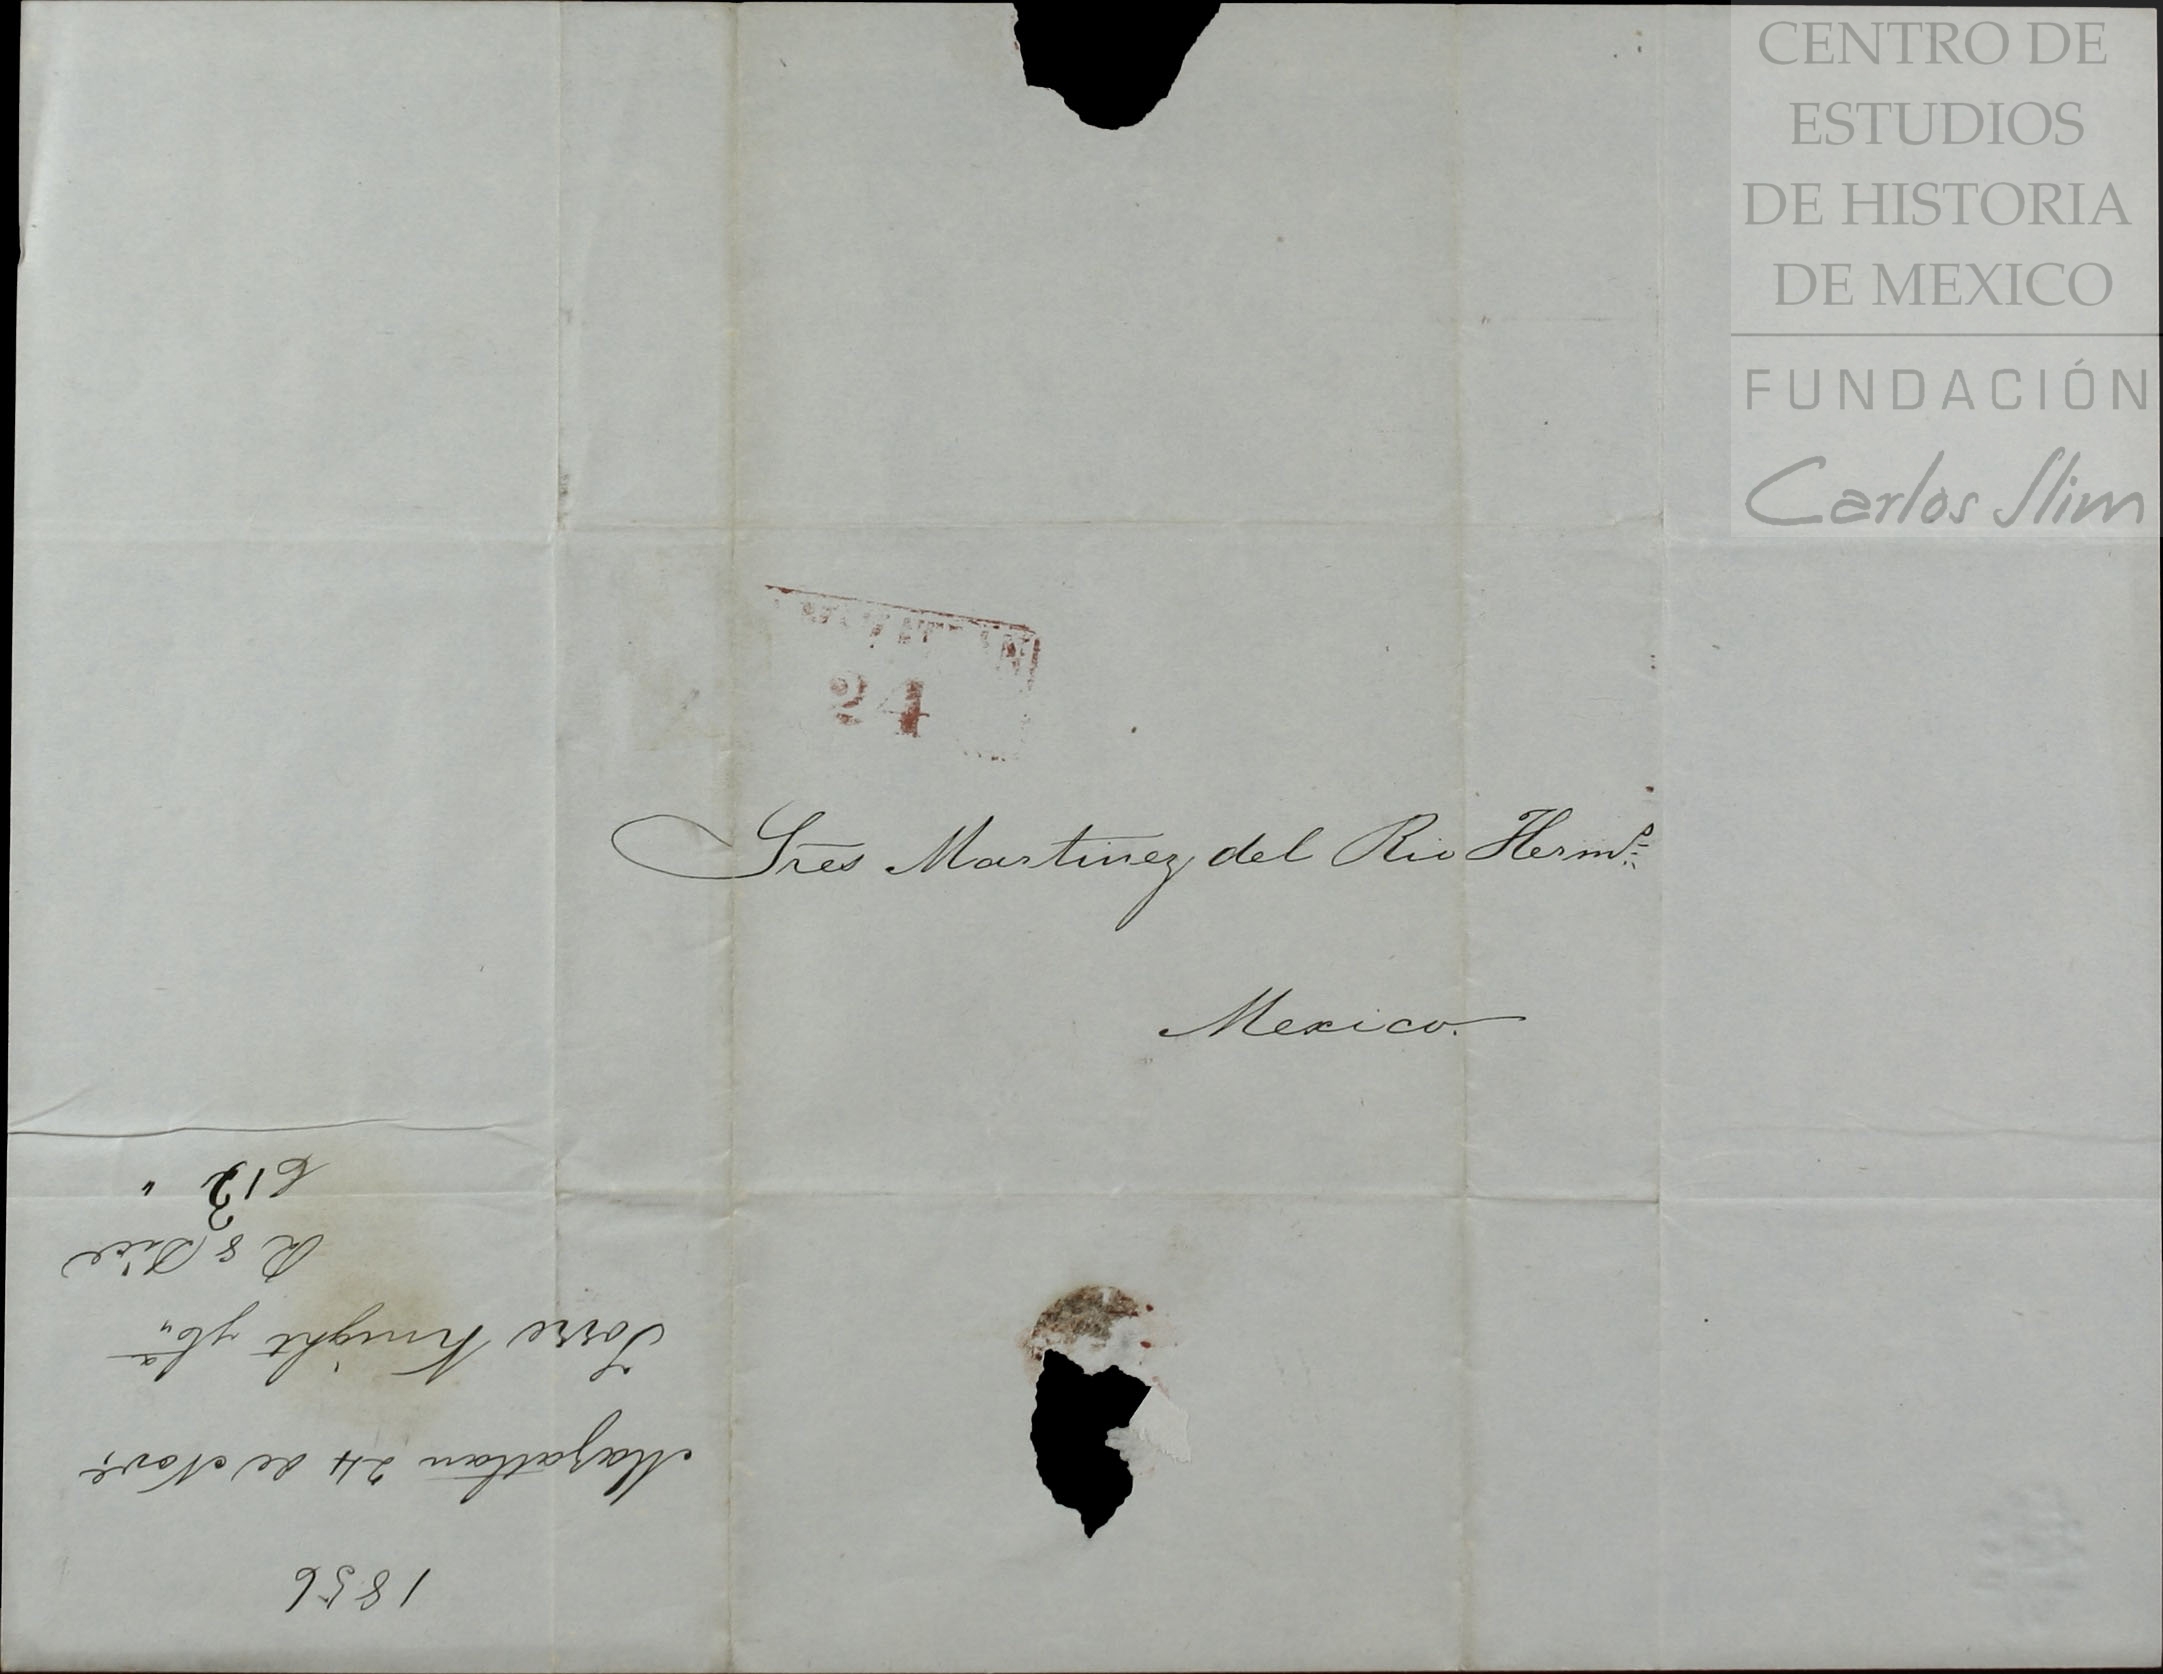 CENTRO DE
ESTUDIOS
DE HISTORIA
DE MEXICO
FUNDACIÓN
Carlos Slim
MAZATLAN
24
Sres Martinez del Rio Herms
Mexico.
1856
Mazatlan 24 de Nove
Torre Knight y Ca
R 8 Dice
C 12 "